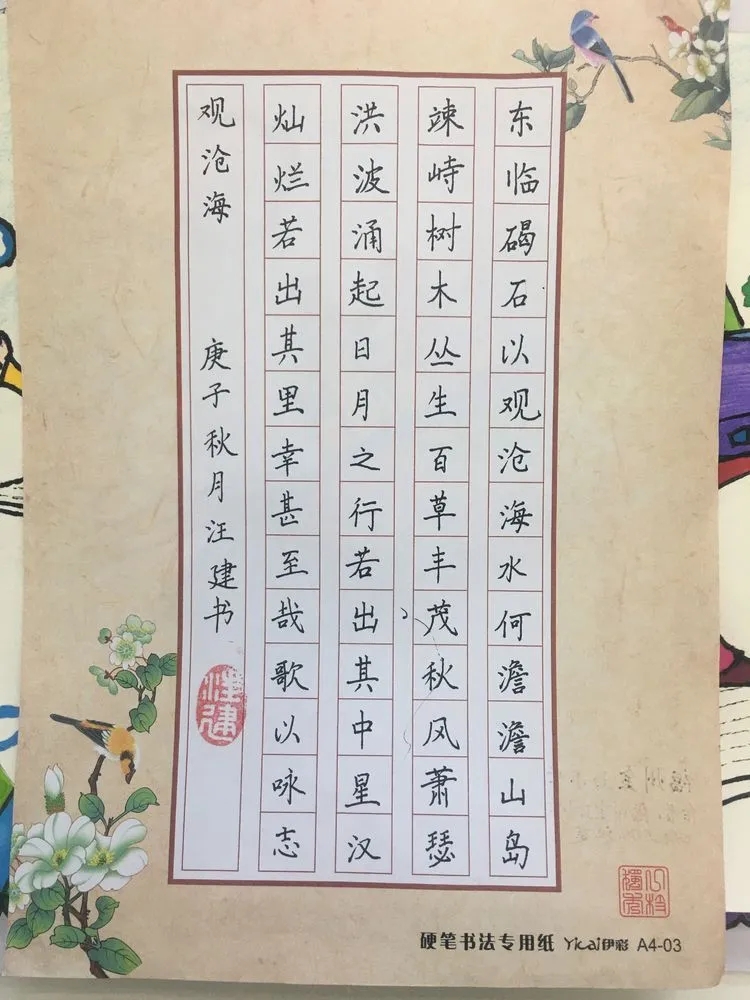 东临碣石以观沧海水何澹澹山岛
竦峙树木丛生百草丰茂秋风萧瑟
洪波涌起日月之行若出其中星汉
灿烂若出其里幸甚至哉歌以咏志
观沧海 庚子秋月汪建书
汪建
硬笔书法专用纸 Yicai伊彩 A4-03